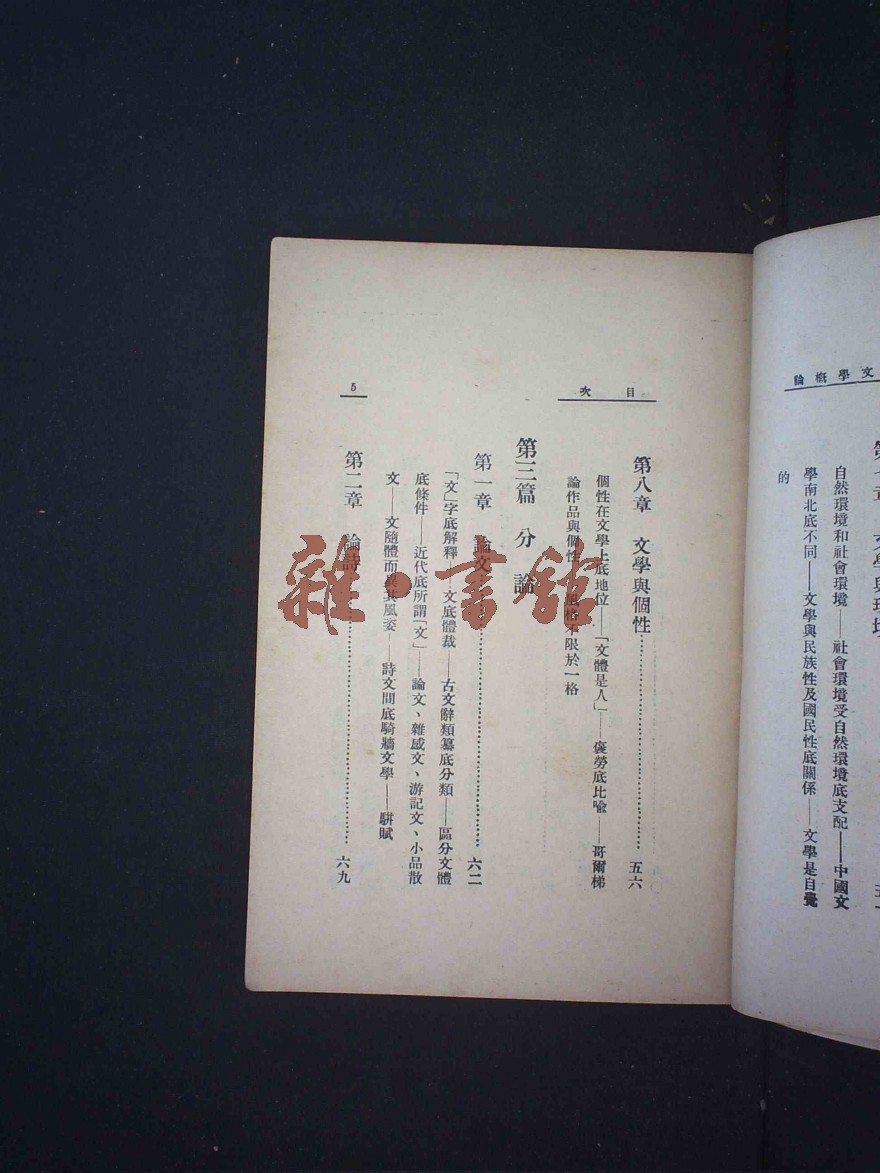 文學概論
自然環境和社會環境——社會環境受自然環境底支配——中國文
學南北底不同——文學與民族性及國民性底關係——文學是自覺
的
目次
第八章　文學與個性……五六
個性在文學上底地位——「文體是人」——袞勞底比喩——哥爾梯
論作品與個性——風格不限於一格
第三篇　分論
第一章　論文……六二
「文」字底解釋——文底體裁——古文辭類纂底分類——區分文體
底條件——近代底所謂「文」——論文、雜感文、游記文、小品散
文——文隨體而異其風姿——詩文間底騎牆文學——駢賦
第二章　論詩……六九
5
雜·書館